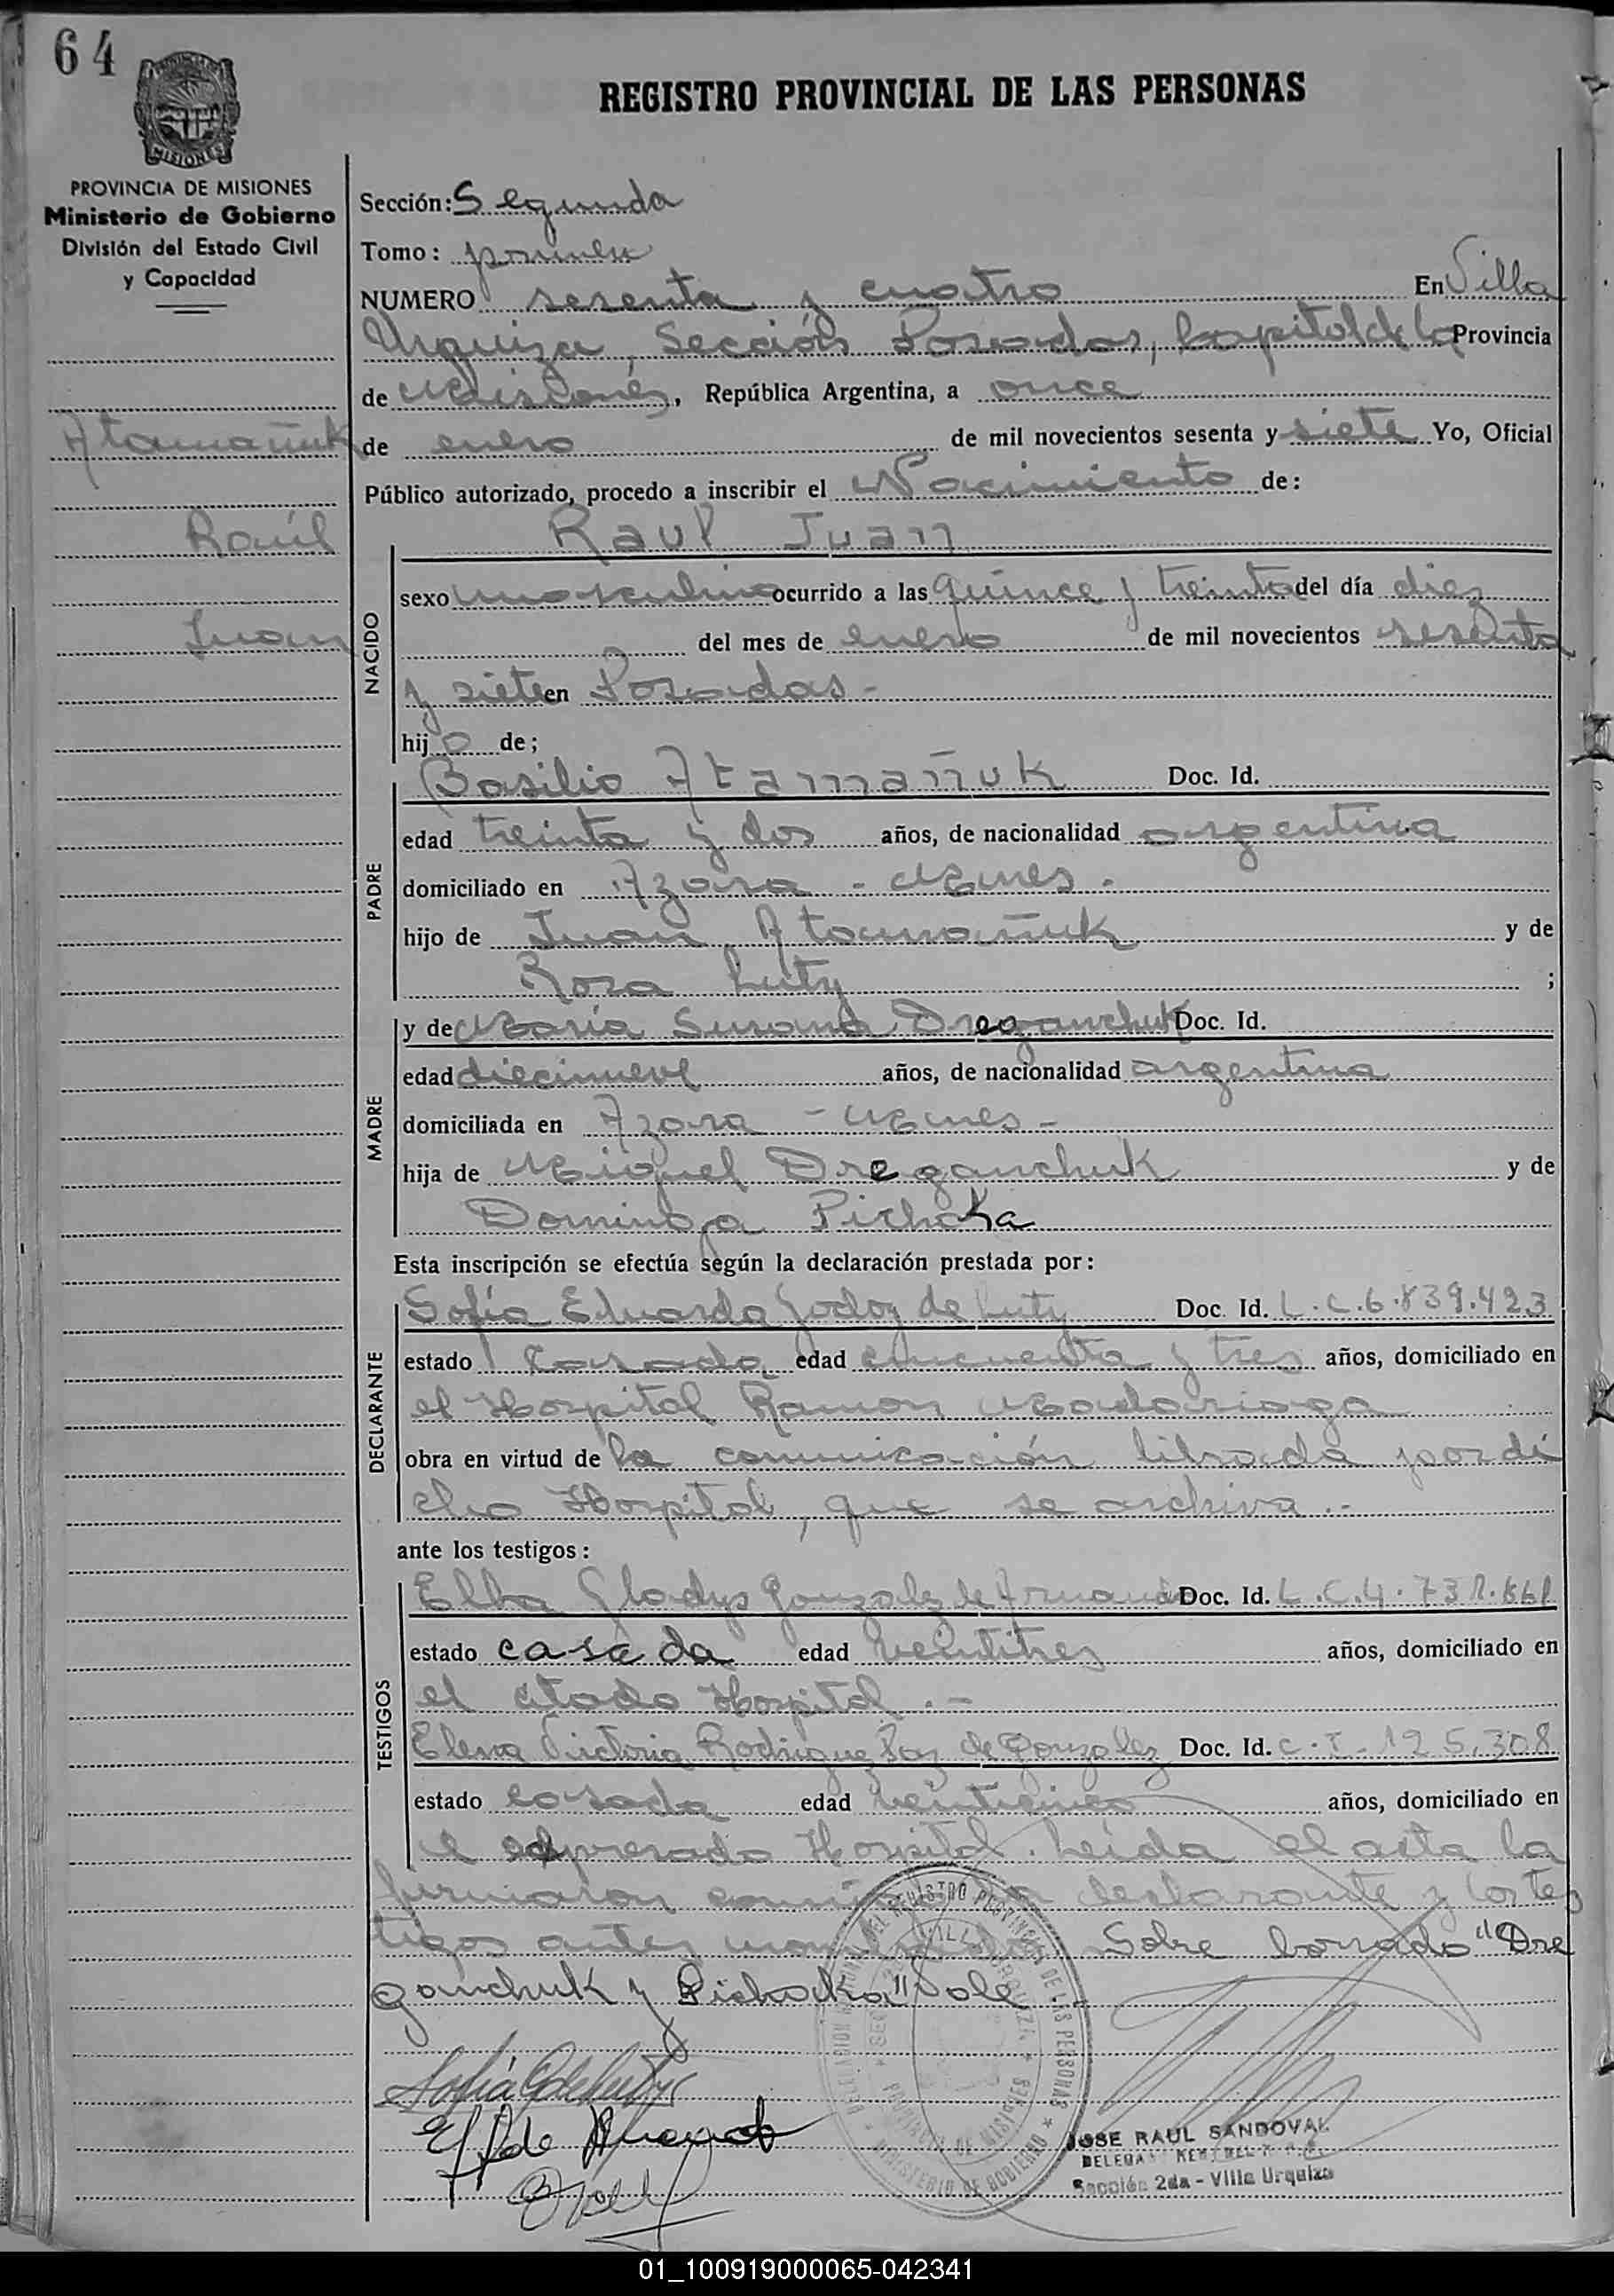 64
REGISTRO PROVINCIAL DE LAS PERSONAS
MISIONES
PROVINCIA DE MISIONES
Ministerio de Gobierno
División del Estado Civil
y Capacidad
Atamañuk
Raúl
Juan
Sección: Segunda
Tomo: primero
NUMERO sesenta y cuatro En Villa
Urquiza, Sección Posadas, Capital de la Provincia
de Misiones, República Argentina, a once
de enero de mil novecientos sesenta y siete Yo, Oficial
Público autorizado, procedo a inscribir el Nacimiento de:
Raul Juan
NACIDO
sexo masculino ocurrido a las quince y treinta del día diez
del mes de enero de mil novecientos sesenta
y siete en Posadas-
hijo de;
PADRE
Basilio Atamañuk Doc. Id.
edad treinta y dos años, de nacionalidad argentina
domiciliado en Azara - Mnes.
hijo de Juan Atamañuk y de
Rosa Luty ;
MADRE
y de María Susana Dreganchuk Doc. Id.
edad diecinueve años, de nacionalidad argentina
domiciliada en Azara - Mnes -
hija de Miguel Dreganchuk y de
Dominga Pichoka
Esta inscripción se efectúa según la declaración prestada por:
DECLARANTE
Sofía Eduarda Godoy de Luty Doc. Id. L.C.6.839.423
estado casada edad cincuenta y tres años, domiciliado en
el Hospital Ramon Madariaga
obra en virtud de la comunicación librada por di
cho Hospital, que se archiva.-
ante los testigos:
TESTIGOS
Elba Gladys Gonzalez de Doc. Id. L.C.4.
estado casada edad veintitres años, domiciliado en
el citado Hospital.-
Elena Victoria Rodriguez Paz de Gonzalez Doc. Id. C.I. 125.308
estado casada edad veinticinco años, domiciliado en
el expresado Hospital. Leida el acta la
firmaron conmigo la declarante y los tes
tigos antes Sobre borrado "Dre
ganchuk y Pichoka" Vale
Sofía G de Luty
JOSE RAUL SANDOVAL
Sección 2da - Villa Urquiza
01_100919000065-042341